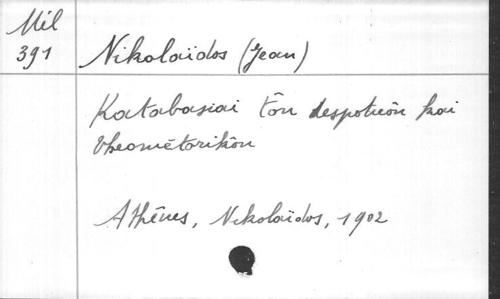 Mél
391
Nikolaïdos (Jean)
Katabasiai tôn despotiôn kai
theomêtorikôn
Athênes, Nikolaïdos, 1902